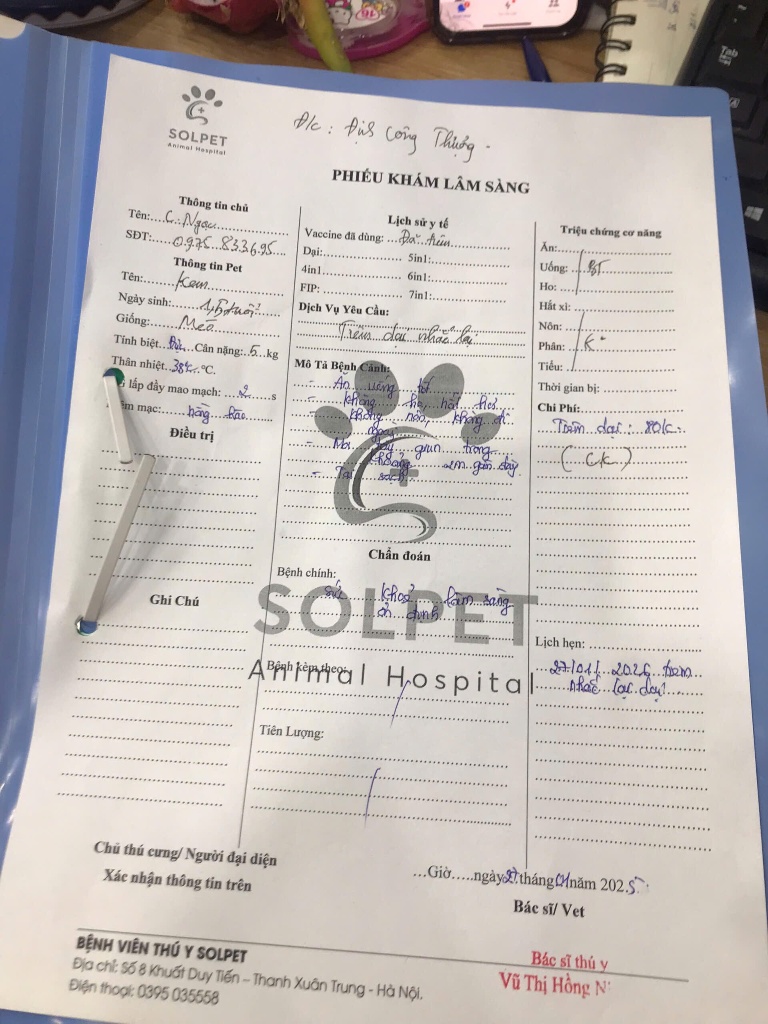 SOLPET
Animal Hospital
Đ/c: Định Công Thượng.
PHIẾU KHÁM LÂM SÀNG
Thông tin chủ
Tên: C. Ngọc
SĐT: 0975.833.695
Thông tin Pet
Tên: Kem
Ngày sinh: 1,5 tuổi
Giống: Mèo
Tính biệt: Đực Cân nặng: 5 kg
Thân nhiệt: 38, °C
lấp đầy mao mạch: 2 s
mạc: hồng hào
Điều trị
Ghi Chú
Lịch sử y tế
Vaccine đã dùng: Đã tiêm
Dại: 5in1:
4in1 6in1:
FIP: 7in1:
Dịch Vụ Yêu Cầu:
Tiêm dại nhắc lại
Mô Tả Bệnh Cảnh:
- Ăn uống tốt
- Không ho, hắt hơi
không nôn, không đi
ngoài
- Mới tẩy giun trong
khoảng 2m gần đây
- Tai sạch
Chẩn đoán
Bệnh chính:
Sức khoẻ lâm sàng
ổn định
SOLPET
Animal Hospital
Bệnh kèm theo:
Tiên Lượng:
Triệu chứng cơ năng
Ăn:
Uống: BT
Ho:
Hắt xì:
Nôn:
Phân: K
Tiểu:
Thời gian bị:
Chi Phí:
Tiêm dại: 80k
(CK)
Lịch hẹn:
27/01/2026 tiêm
nhắc lại dại
Chủ thú cưng/ Người đại diện
Xác nhận thông tin trên
...Giờ.....ngày 27 tháng 01 năm 2025
Bác sĩ/ Vet
BỆNH VIỆN THÚ Y SOLPET
Địa chỉ: Số 8 Khuất Duy Tiến – Thanh Xuân Trung - Hà Nội.
Điện thoại: 0395 035558
Bác sĩ thú y
Vũ Thị Hồng N
Tab